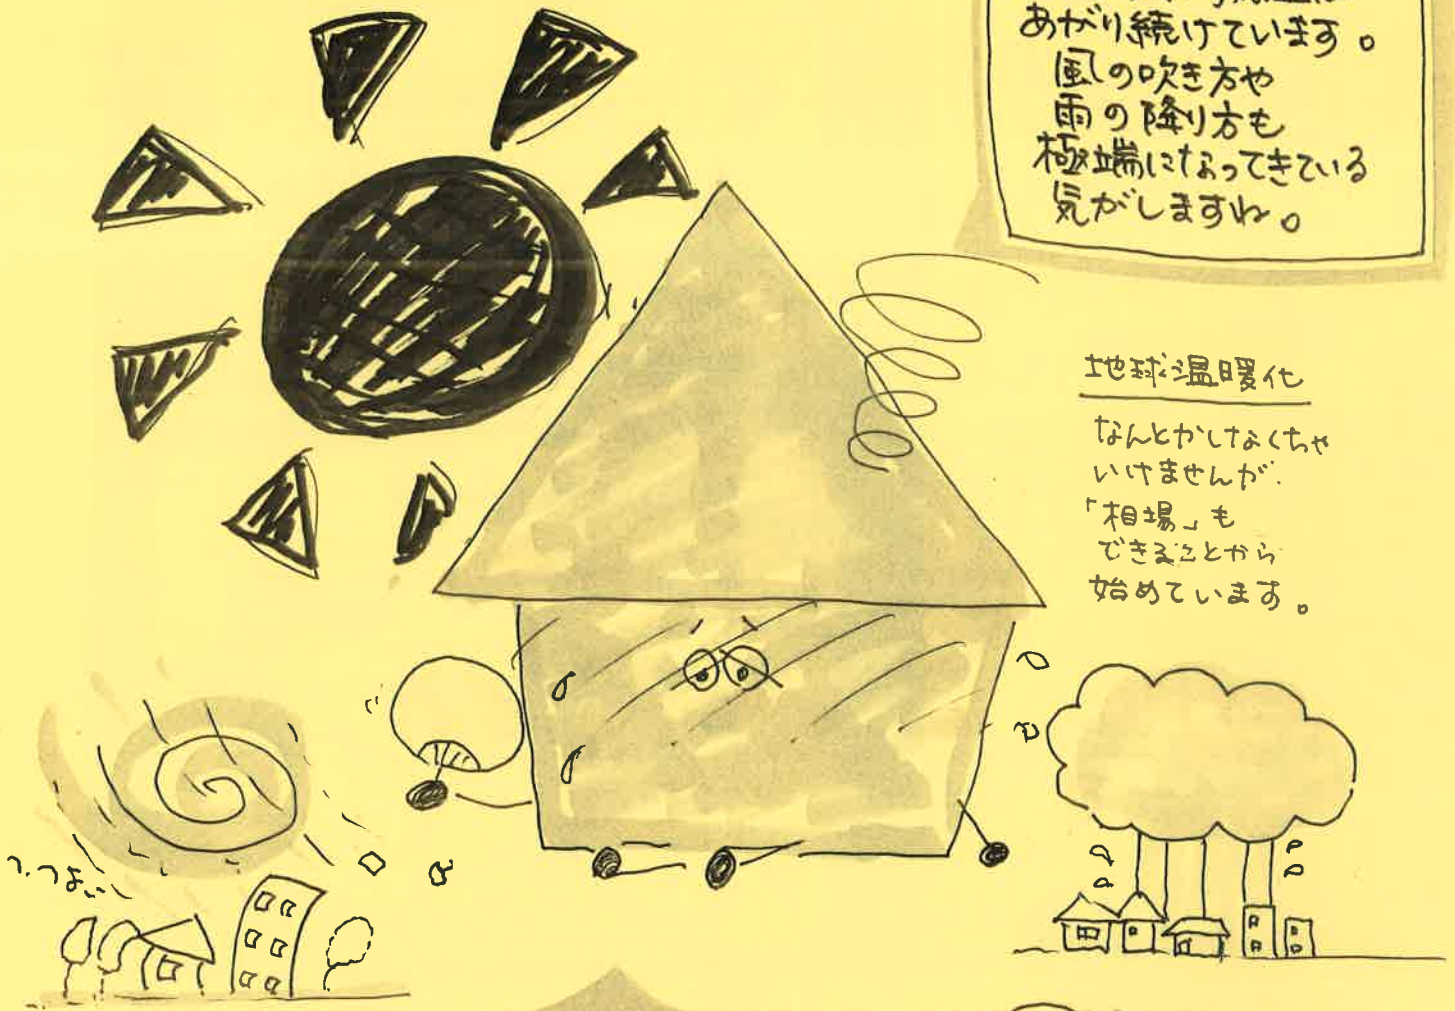 あがり続けています。
風の吹き方や
雨の降り方も
極端になってきている
気がしますね。
地球温暖化
なんとかしなくちゃ
いけませんが、
「相場」も
できることから
始めています。
つよい